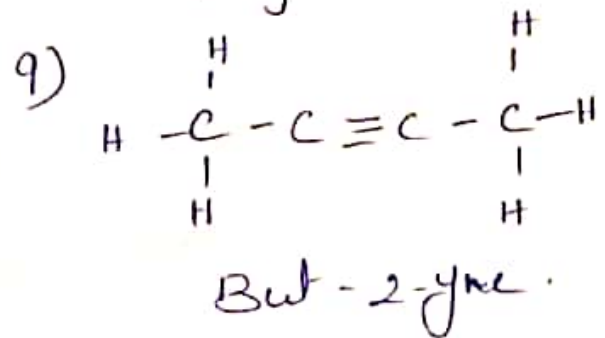 9)
H H
H - C - C ≡ C - C - H
H H
But-2-yne.